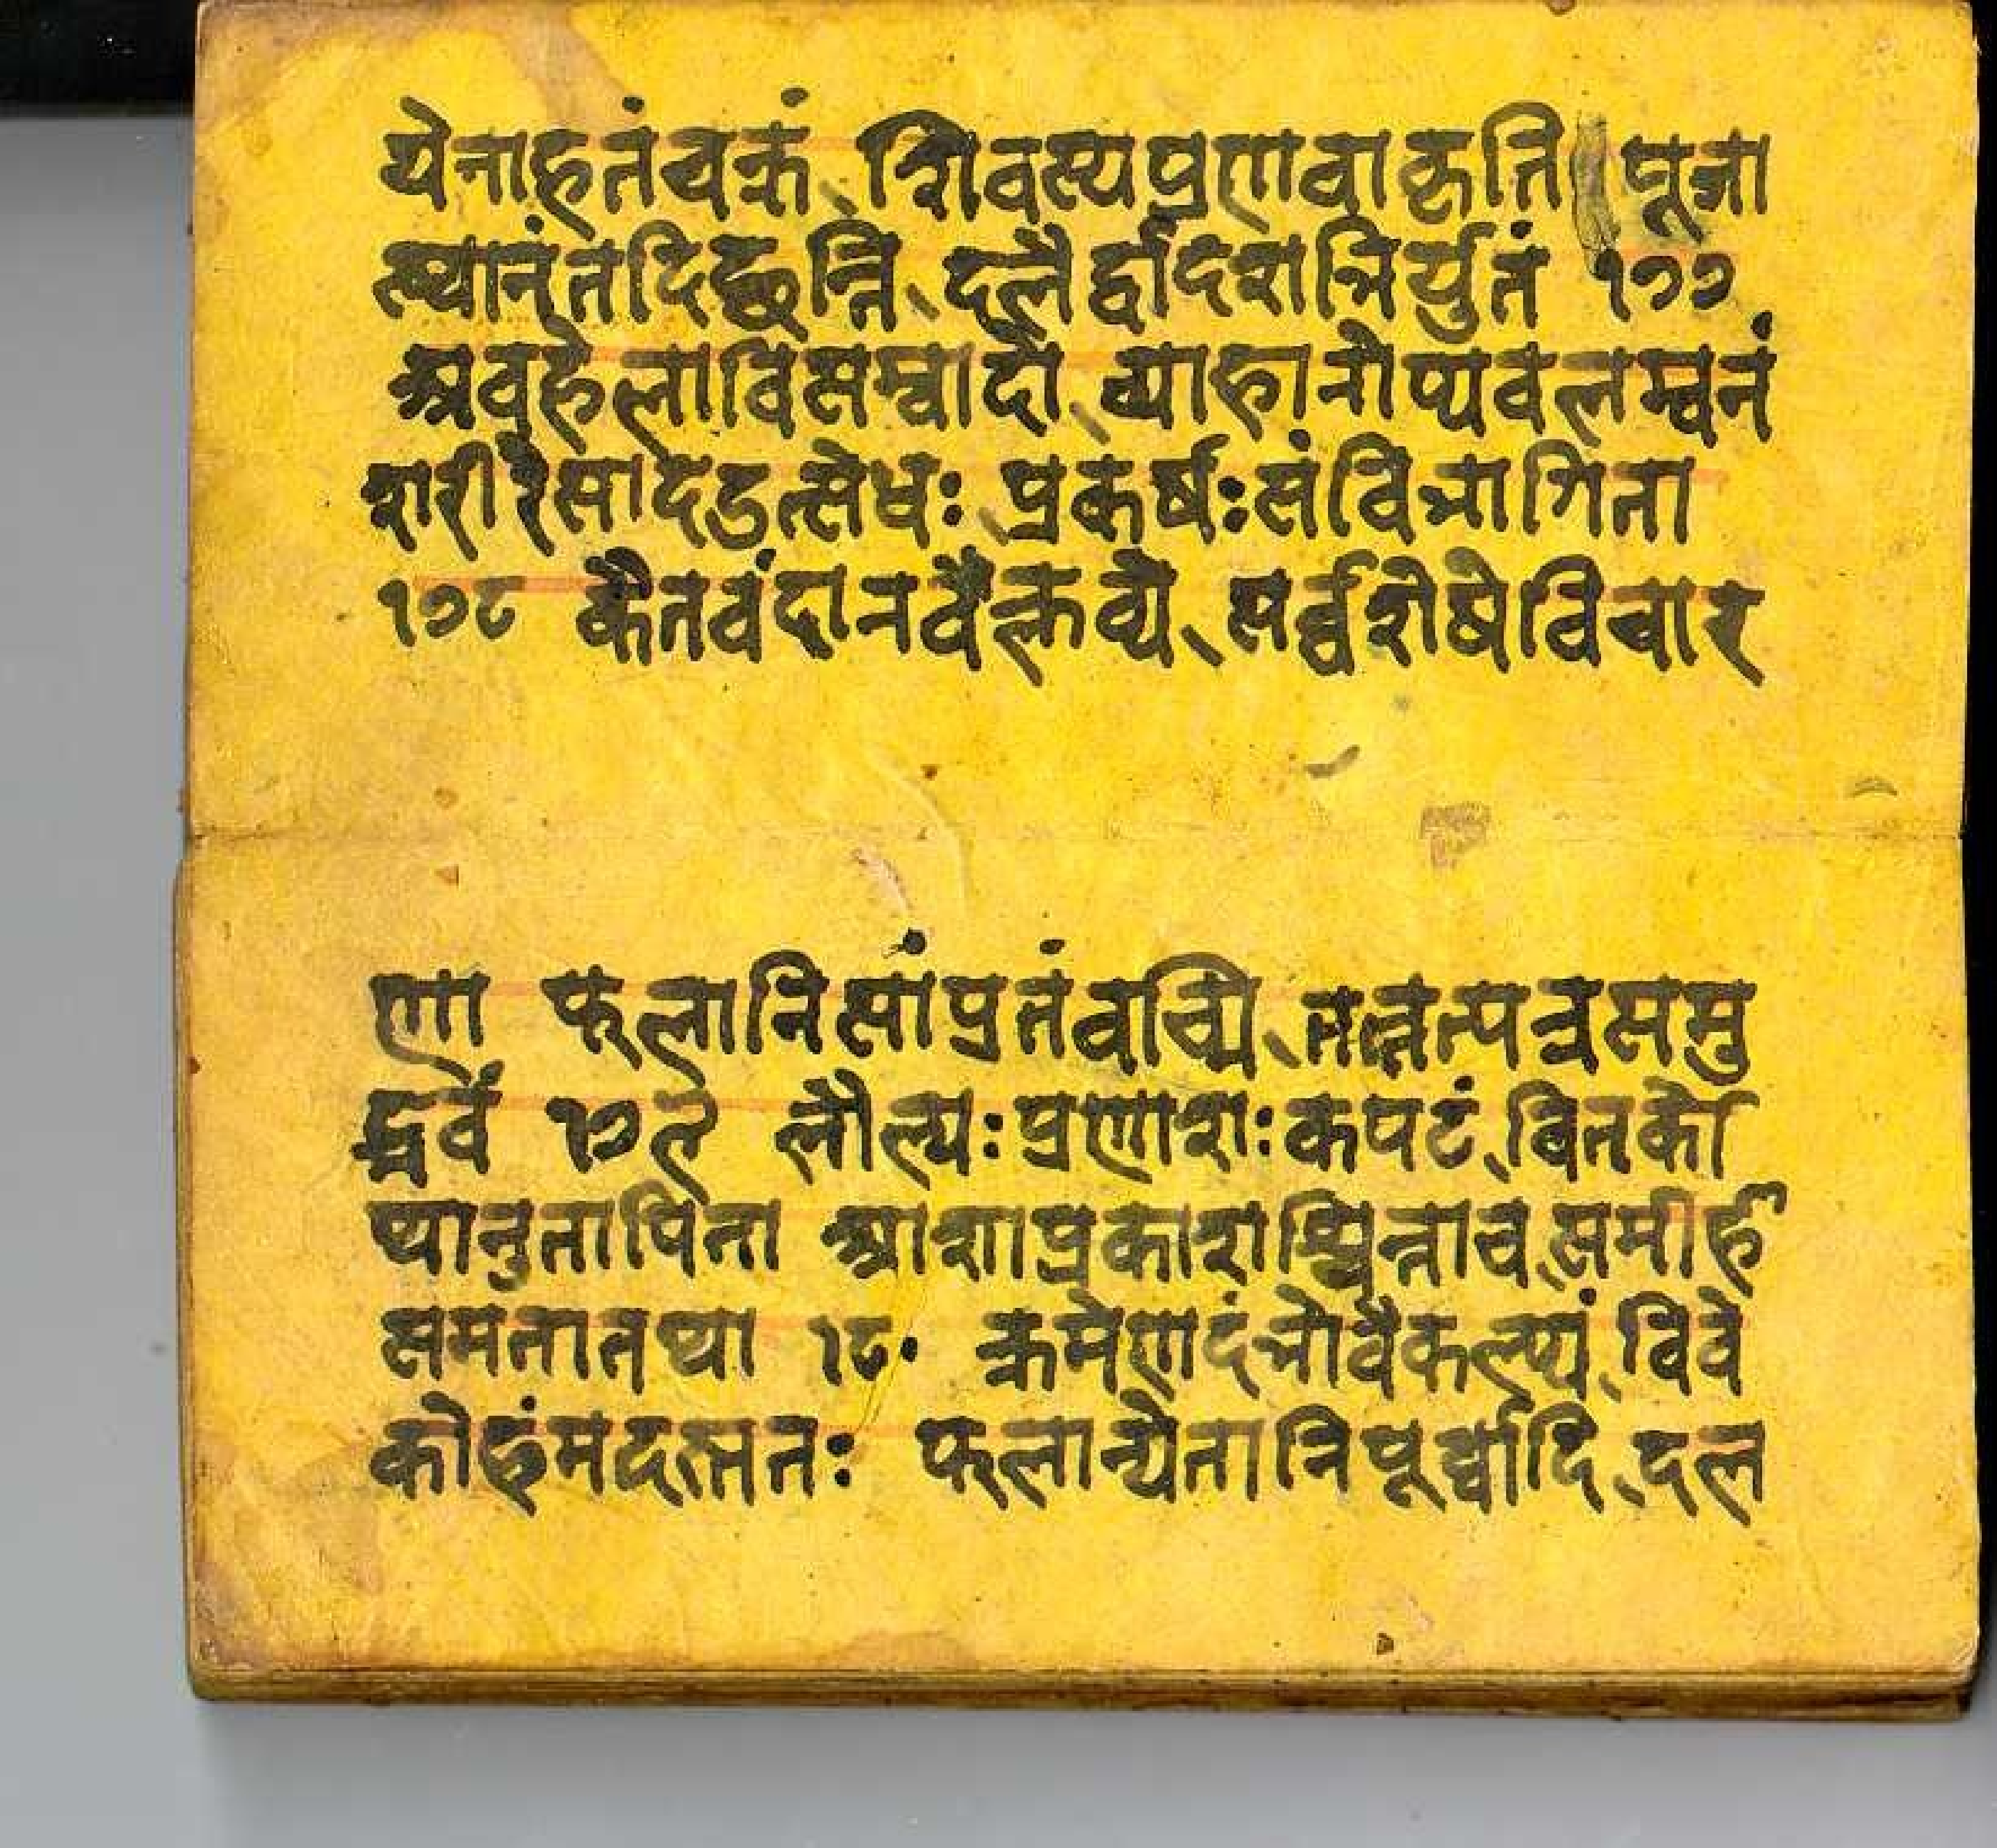 येनाहतंचक्रं शिवस्यप्रणवाकृति पूजा
स्थानंतदिच्छन्ति दलैर्द्वादशभिर्युतं १७७
अवहेलाविसम्बादो व्याहानोप्यवलम्बनं
शरीरेसादडत्सेधः प्रकर्षःसंविभागिता
१७८ कैतवंदानवैक्लव्ये सर्व्वशेषेविचार
णा फलानिसांप्रतंवच्मि तत्तत्पत्रसमु
द्भवे १७९ लौल्यःप्रणाशःकपटं वितर्को
प्यानुतापिता आशाप्रकाशश्चिन्ताच समीहा
समतातथा १८० क्रमेणादंभोवैकल्प्यं विवे
कोहंमदस्ततः फलान्येतानिपूर्व्वादि दल